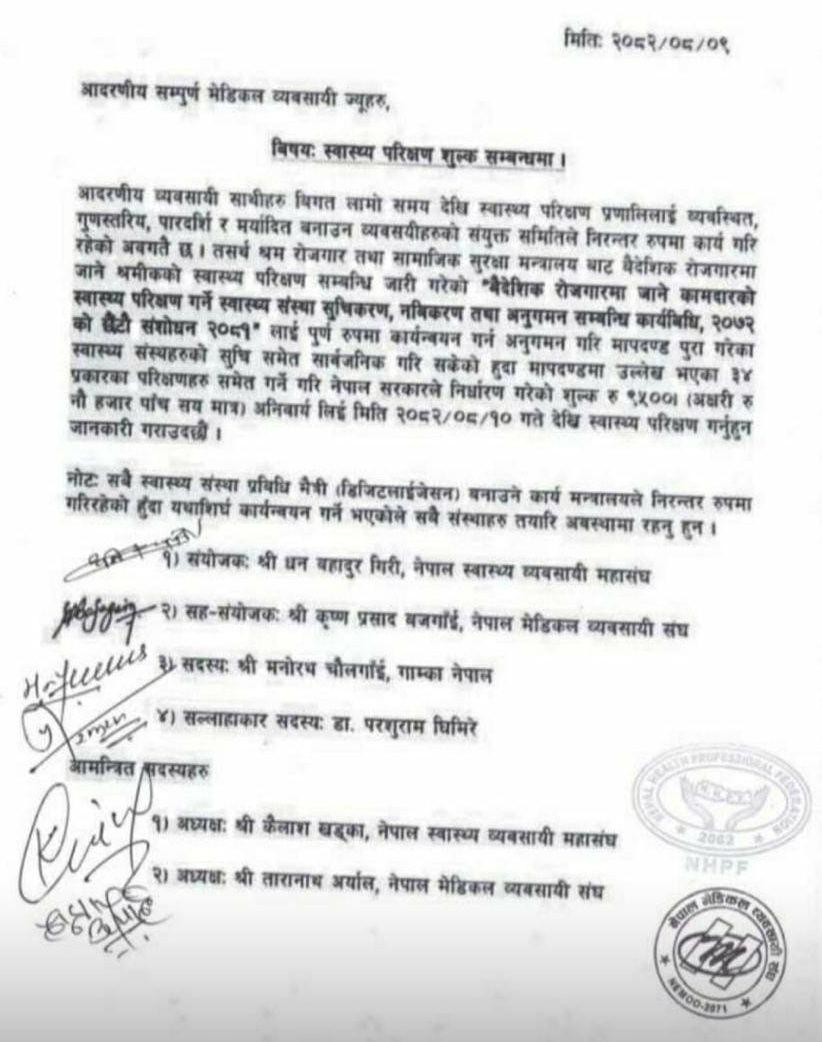 मितिः २०८२/०८/०९
आदरणीय सम्पुर्ण मेडिकल व्यवसायी ज्यूहरु,
बिषयः स्वास्थ्य परिक्षण शुल्क सम्बन्धमा ।
आदरणीय व्यवसायी साथीहरु बिगत लामो समय देखि स्वास्थ्य परिक्षण प्रणालिलाई व्यवस्थित,
गुणस्तरिय, पारदर्शि र मर्यादित बनाउन व्यवसयीहरुको संयुक्त समितिले निरन्तर रुपमा कार्य गरि
रहेको अवगतै छ । तसर्थ श्रम रोजगार तथा सामाजिक सुरक्षा मन्त्रालय बाट बैदेशिक रोजगारमा
जाने श्रमीकको स्वास्थ्य परिक्षण सम्बन्धि जारी गरेको "बैदेशिक रोजगारमा जाने कामदारको
स्वास्थ्य परिक्षण गर्ने स्वास्थ्य संस्था सुचिकरण, नबिकरण तथा अनुगमन सम्बन्धि कार्यबिधि, २०७२
को छैटौ संशोधन २०८१" लाई पुर्ण रुपमा कार्यन्वयन गर्न अनुगमन गरि मापदण्ड पुरा गरेका
स्वास्थ्य संस्थहरुको सुचि समेत सार्वजनिक गरि सकेको हुदा मापदण्डमा उल्लेख भएका ३४
प्रकारका परिक्षणहरु समेत गर्ने गरि नेपाल सरकारले निर्धारण गरेको शुल्क रु ९५००। (अक्षरी रु
नौ हजार पाँच सय मात्र) अनिवार्य लिई मिति २०८२/०८/१० गते देखि स्वास्थ्य परिक्षण गर्नुहुन
जानकारी गराउदछौ ।
नोटः सबै स्वास्थ्य संस्था प्रबिधि मैत्री (डिजिटलाईजेसन) बनाउने कार्य मन्त्रालयले निरन्तर रुपमा
गरिरहेको हुँदा यथाशिर्घ कार्यन्वयन गर्ने भएकोले सबै संस्थाहरु तयारि अवस्थामा रहनु हुन ।
१) संयोजकः श्री धन बहादुर गिरी, नेपाल स्वास्थ्य व्यवसायी महासंघ
२) सह-संयोजकः श्री कृष्ण प्रसाद बजगाँई, नेपाल मेडिकल व्यवसायी संघ
३) सदस्यः श्री मनोरथ चौलगाँई, गाम्का नेपाल
४) सल्लाहाकार सदस्यः डा. परशुराम घिमिरे
आमन्त्रित सदस्यहरु
१) अध्यक्षः श्री कैलाश खड्का, नेपाल स्वास्थ्य व्यवसायी महासंघ
२) अध्यक्षः श्री तारानाथ अर्याल, नेपाल मेडिकल व्यवसायी संघ
NEPAL HEALTH PROFESSIONAL FEDERATION
2062
NHPF
नेपाल मेडिकल व्यवसायी संघ